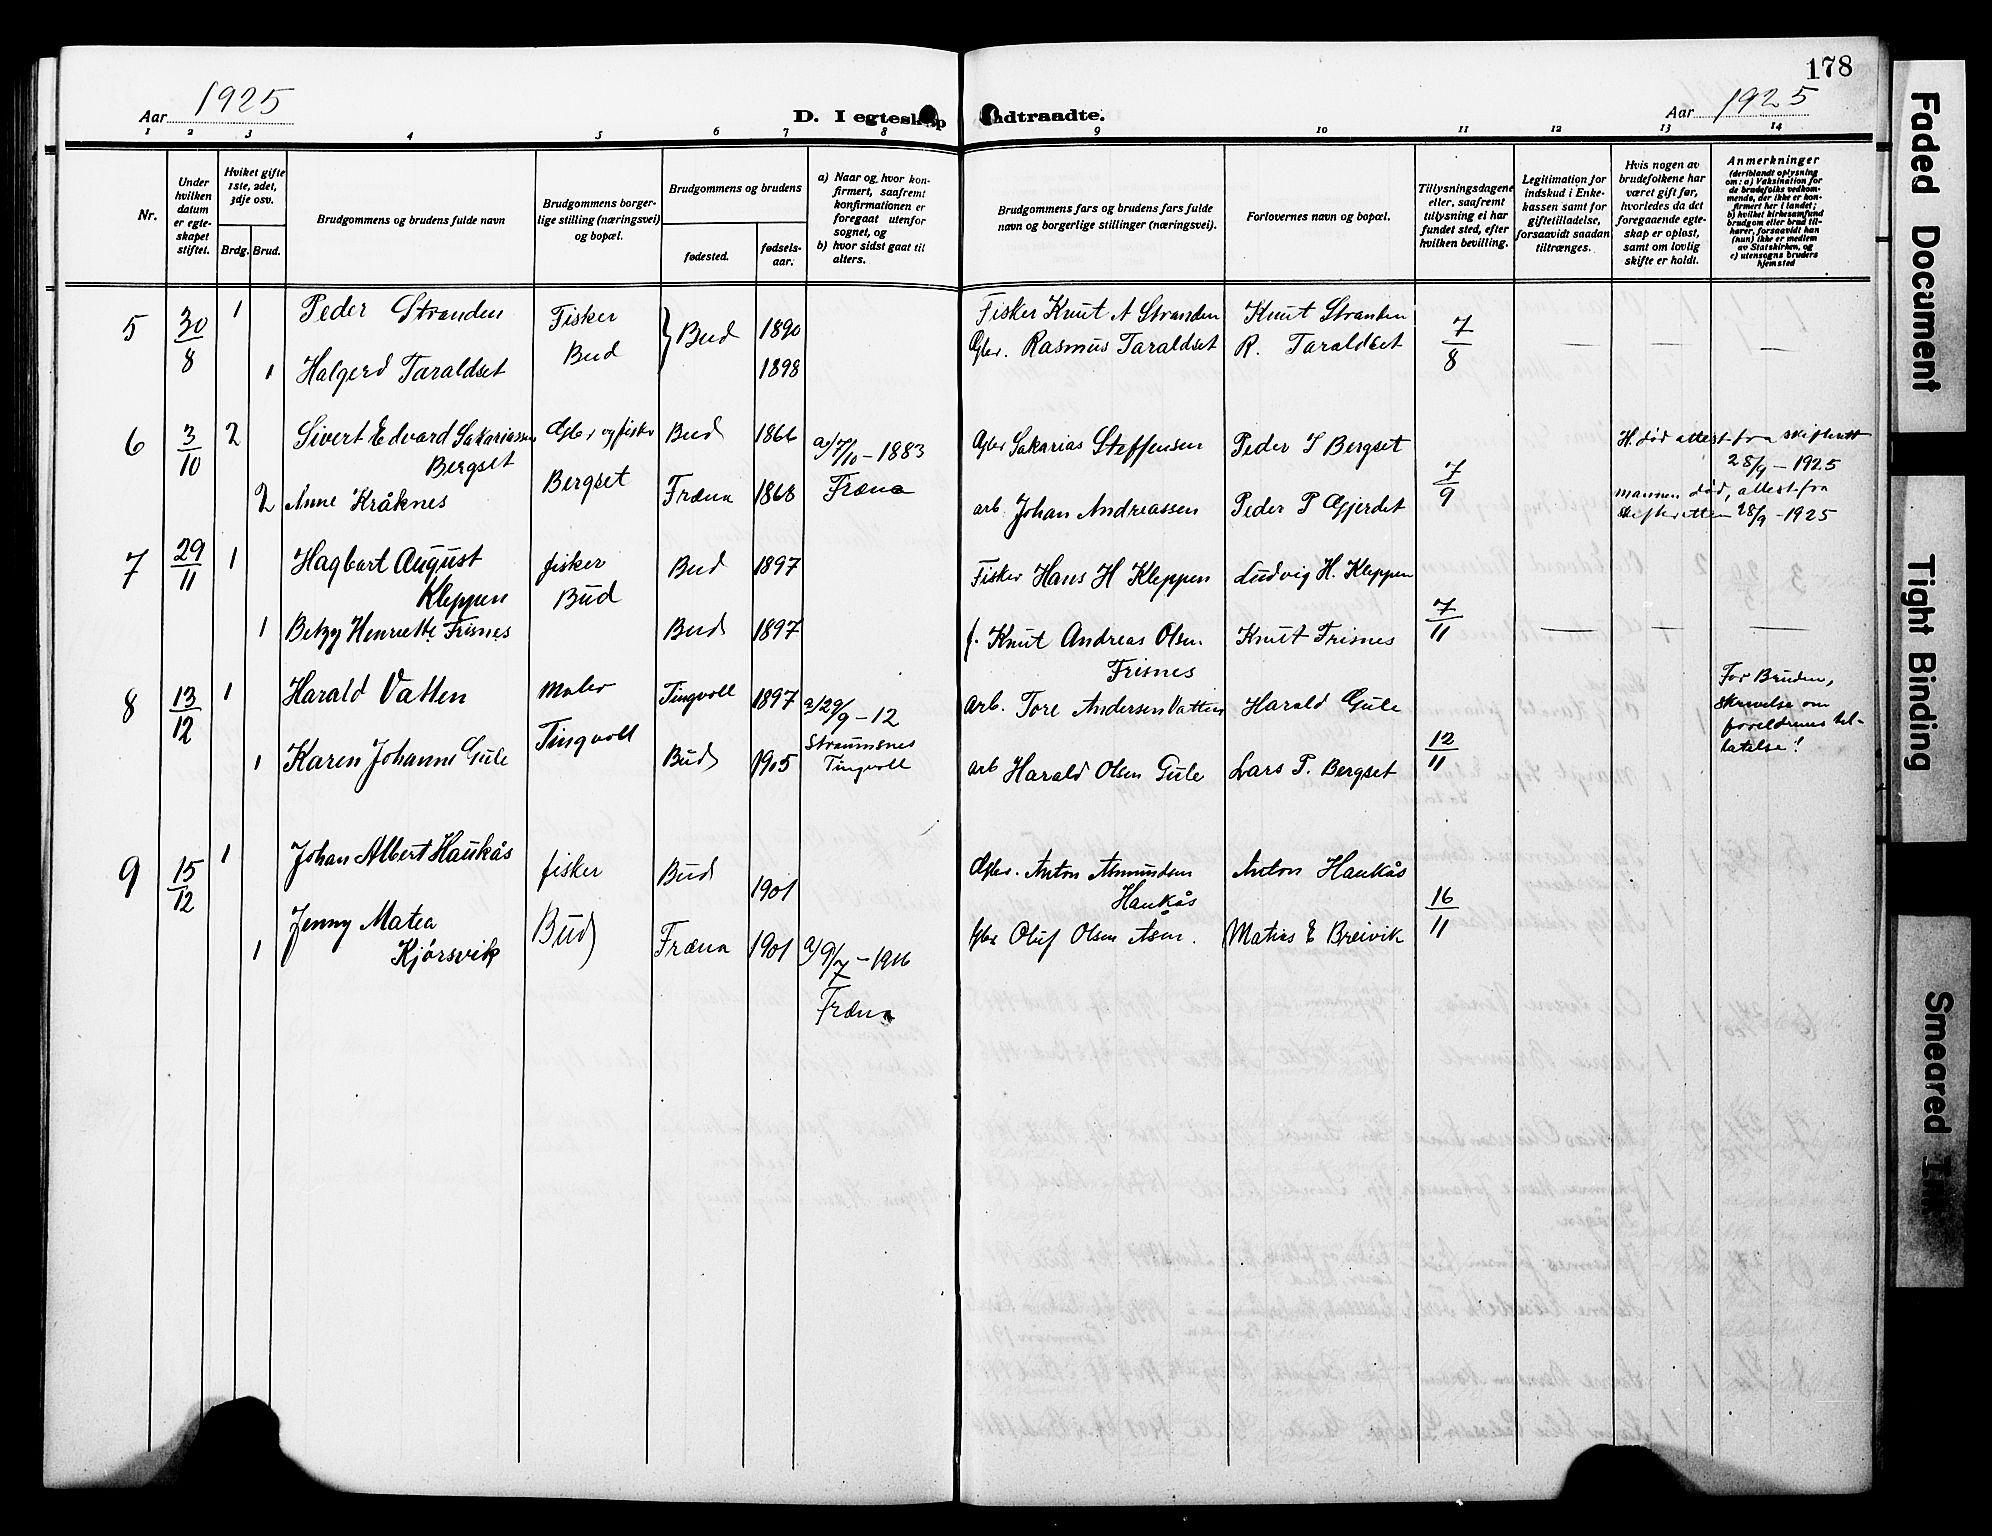 178
Aar 1925
D. I egteskap indtraadte.
Aar 1925
1 2 3 4 5 6 7 8 9 10 11 12 13 14
Nr.
Under hvilken datum er egteskapet stiftet.
Hvilket gifte 1ste, 2det, 3dje osv.
Brdg. Brud.
Brudgommens og brudens fulde navn
Brudgommens borgerlige stilling (næringsvei) og bopæl.
Brudgommens og brudens
fødested.
fødselsaar.
a) Naar og, hvor konfirmert, saafremt konfirmationen er foregaat utenfor sognet, og
b) hvor sidst gaat til alters.
Brudgommens fars og brudens fars fulde navn og borgerlige stillinger (næringsvei).
Forlovernes navn og bopæl.
Tillysningsdagene eller, saafremt tillysning ei har fundet sted, efter hvilken bevilling.
Legitimation for indskud i Enkekassen samt for giftetilladelse, forsaavidt saadan tiltrænges.
Hvis nogen av brudefolkene har været gift før, hvorledes da det foregaaende egteskap er opløst, samt om lovlig skifte er holdt.
Anmerkninger (deriblandt oplysning om: a) Vaksination for de brudefolks vedkommende, der ikke er konfirmert her i landet; b) hvilket kirkesamfund brudgom eller brud tilhører, forsaavidt han (hun) ikke er medlem av Statskirken, og c) utensogns bruders hjemsted
5 30/8 1 Peder Stranden Fisker Bud } Bud 1890 Fisker Knut A Stranden Knut Stranden 7/8 — — —
1 Halgerd Taraldset 1898 Gbr. Rasmus Taraldset R. Taraldset
6 3/10 2 Sivert Edvard Sakariassen Bergset Gbr. og fisker Bergset Bud 1866 Gbr Sakarias Steffensen Peder S Bergset 7/9 H. død attest fra skifterett 28/9 - 1925
2 Anne Kråknes Fræna 1868 a) 7/10 - 1883 Fræna arb. Johan Andreassen Peder P Gjerdet mannen død, attest fra skifteretten 28/9 - 1925
7 29/11 1 Hagbart August Kleppen fisker Bud Bud 1897 Fisker Hans H Kleppen Ludvig H. Kleppen 7/11 — — —
1 Betzy Henriette Frisnes Bud 1897 f. Knut Andreas Olsen Frisnes Knut Frisnes
8 13/12 1 Harald Vatten Maler Tingvoll Tingvoll 1897 a) 29/9 - 12 Straumsnes Tingvoll arb. Tore Andersen Vatten Harald Gule 12/11 For Bruden, skrivelse om foreldrenes tillatelse!
1 Karen Johanne Gule Bud 1905 arb Harald Olsen Gule Lars P. Bergset
9 15/12 1 Johan Albert Haukås fisker Bud Bud 1901 Gbr. Anton Amundsen Haukås Anton Haukås 16/11
1 Jenny Matea Kjørsvik Fræna 1901 a) 9/7 - 1916 Fræna Gbr Oluf Olsen Åsen. Matias E Breivik
Faded Document
Tight Binding
Smeared Ink